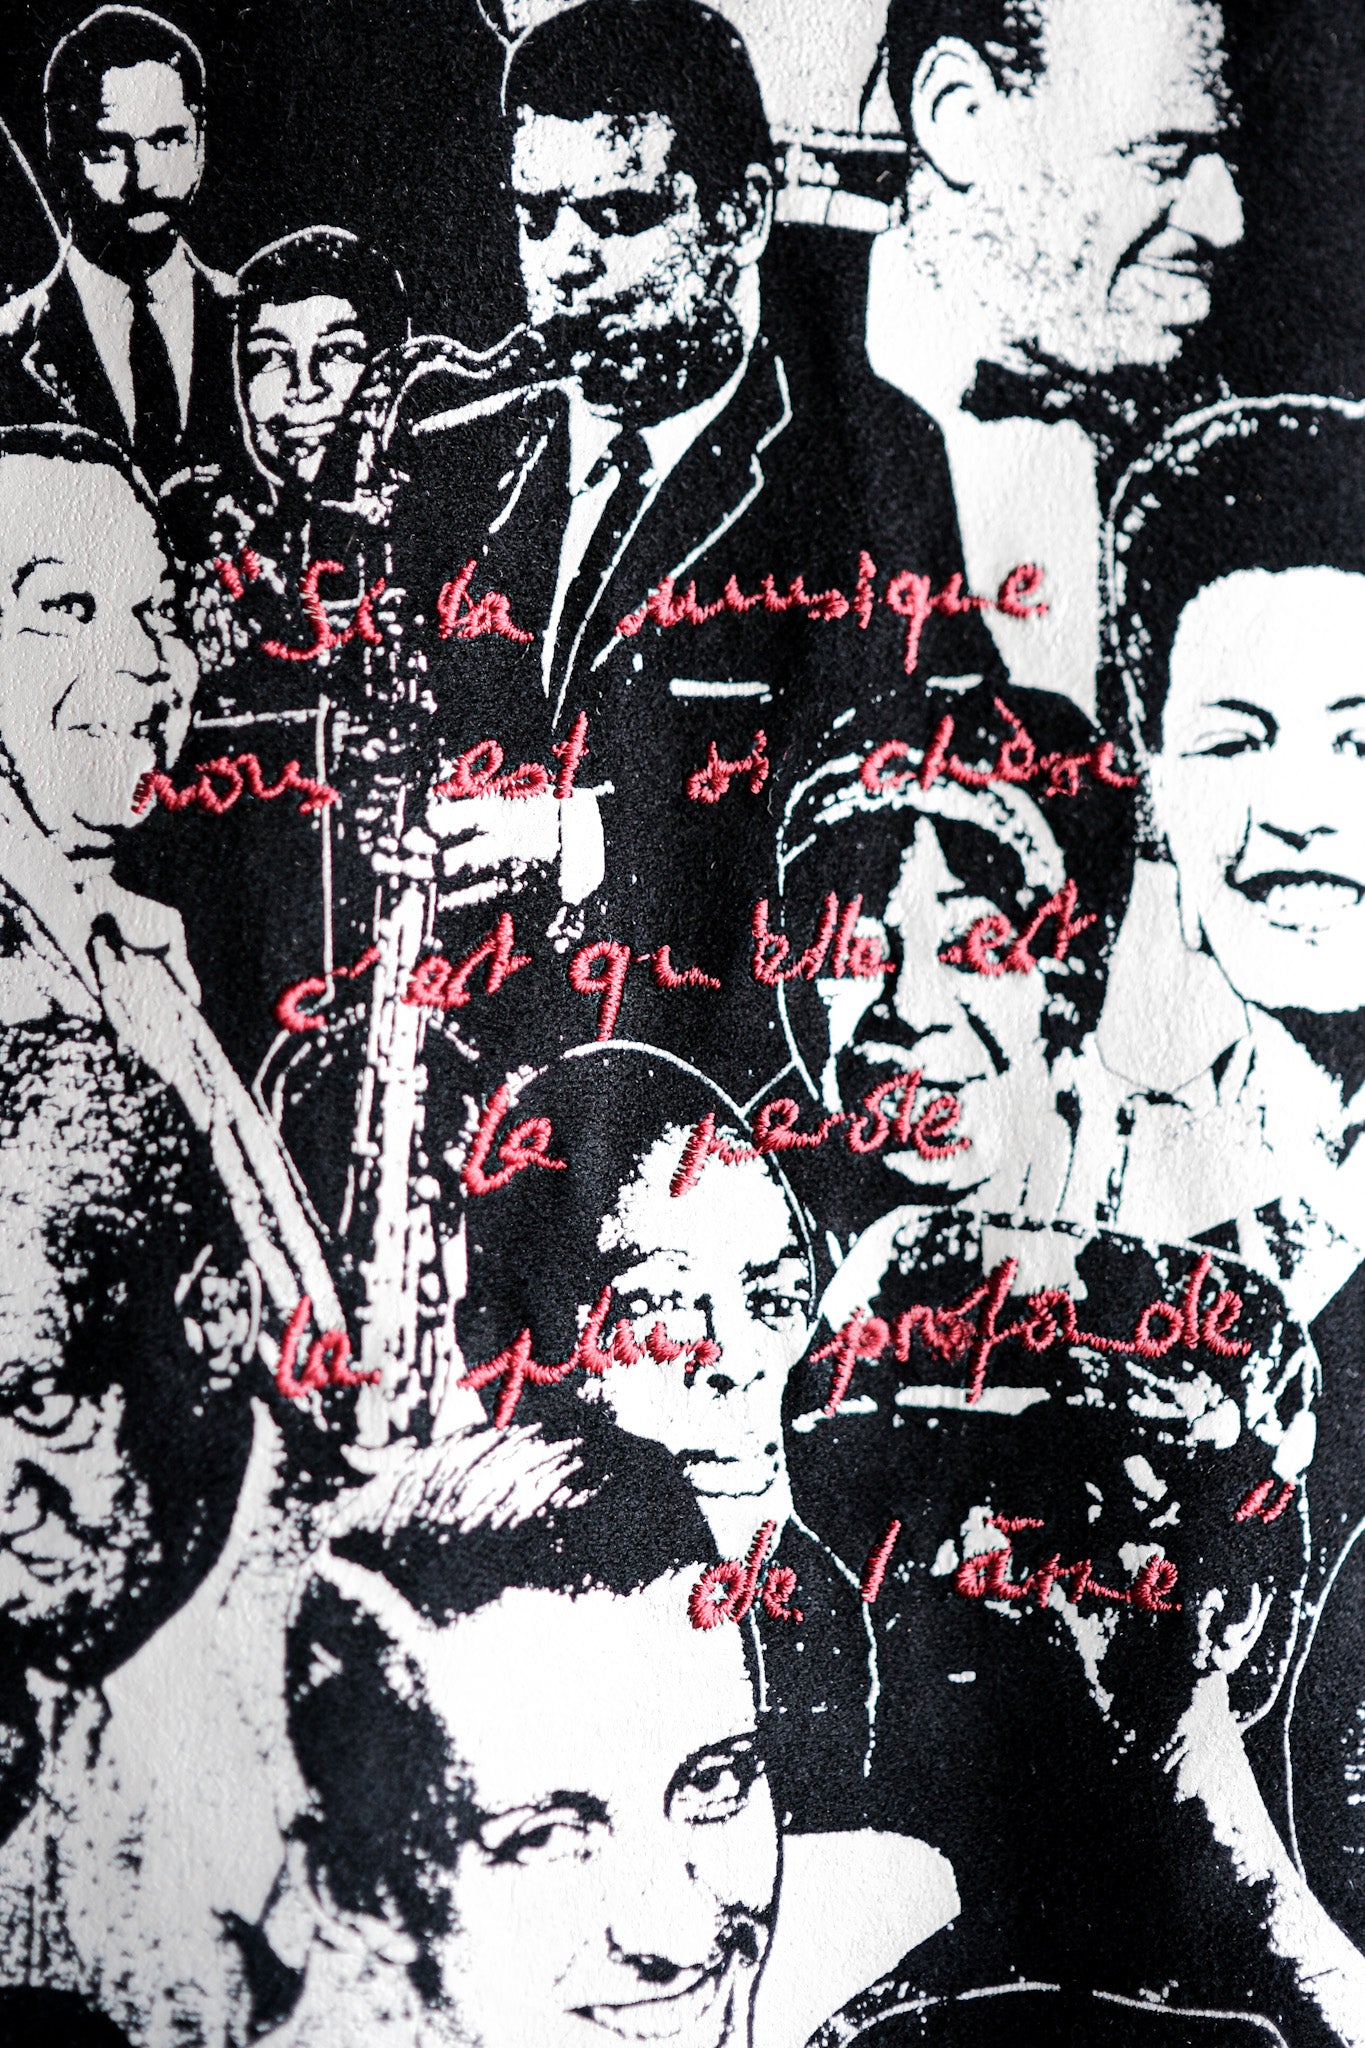 "Si la musique
nous est si chère
c'est qu'elle est
la parole
la plus profonde
de l'âme"